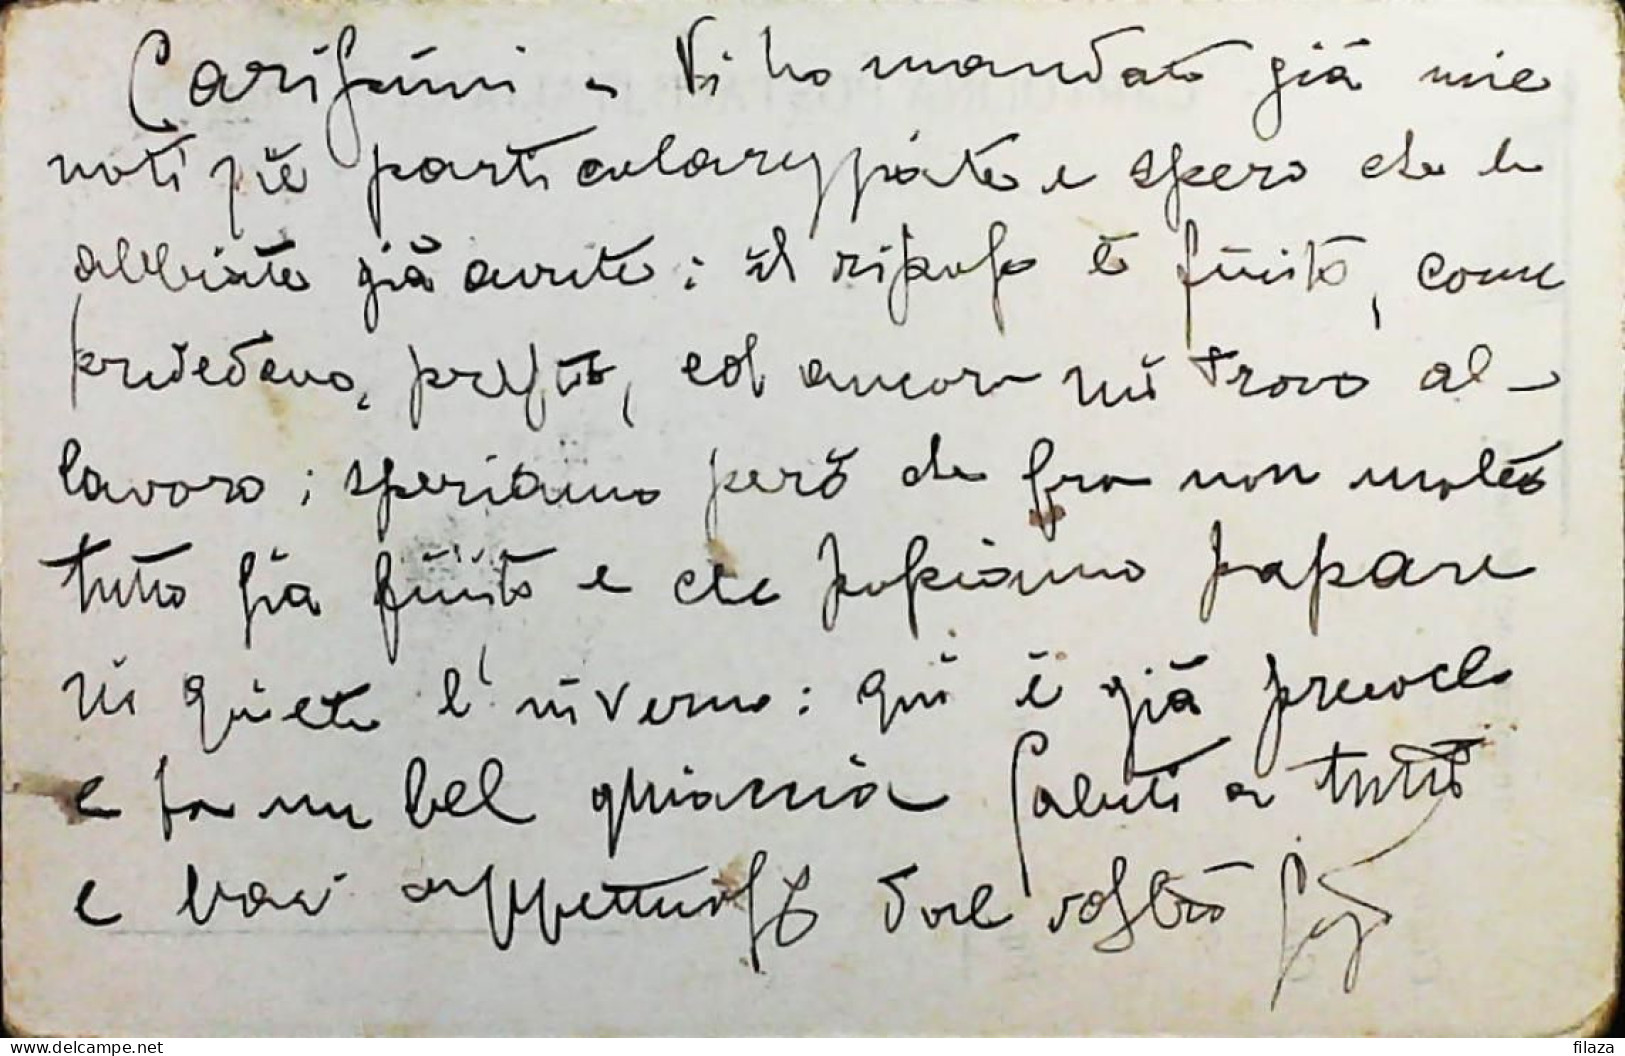 Carissimi - Vi ho mandato già mie
notizie particolareggiate e spero che le
abbiate già avute; il riposo è finito, come
prevedevo, presto, ed ancora mi trovo al
lavoro; speriamo però che fra non molto
tutto sia finito e che possiamo passare
in quiete l'inverno: qui è già
e fa un bel Saluti a tutti
e baci affettuosi dal vostro
filaza
delcampe.net